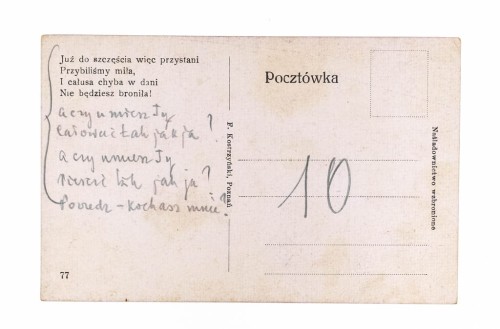 Już do szczęścia więc przystani
Przybiliśmy miła,
I całusa chyba w dani
Nie będziesz broniła!
A czy umiesz Ty
całować tak jak ja?
A czy umiesz Ty
pieścić tak jak ja?
Powiedz - kochasz mnie?
77
Pocztówka
F. Kostrzyński, Poznań
10
Naśladownictwo wzbronione